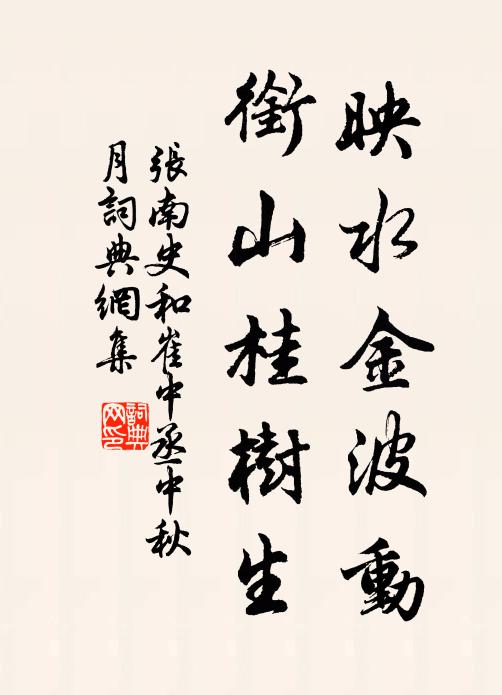 映水金波動
銜山桂樹生
張南史和崔中丞中秋
月詞典網集
詞典
网印